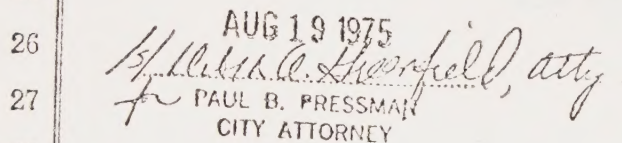 AUG 19 1975
26 /s/ A. Sheerfield, Atty
27 for PAUL B. PRESSMAN
CITY ATTORNEY